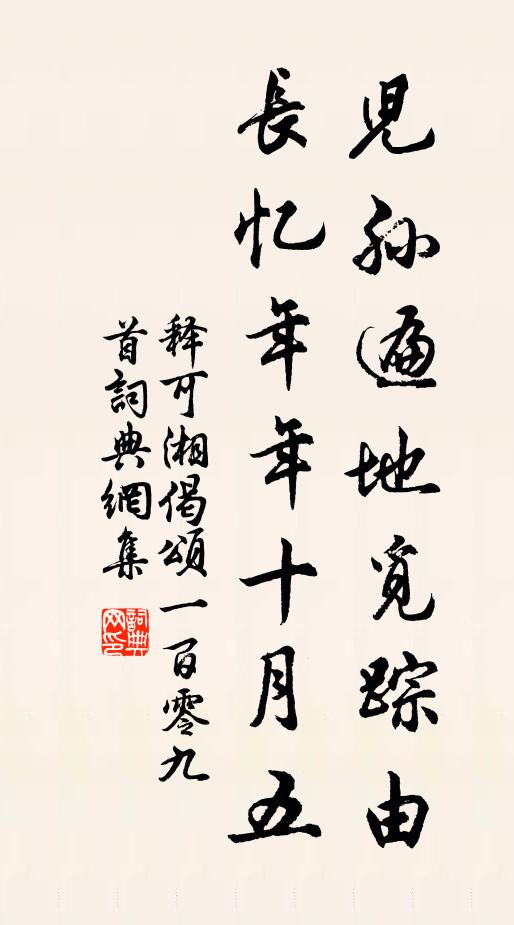 児孫遍地覓踪由
長忆年年十月五
释可湘偈頌一百零九
首詞典網集
詞典
网印